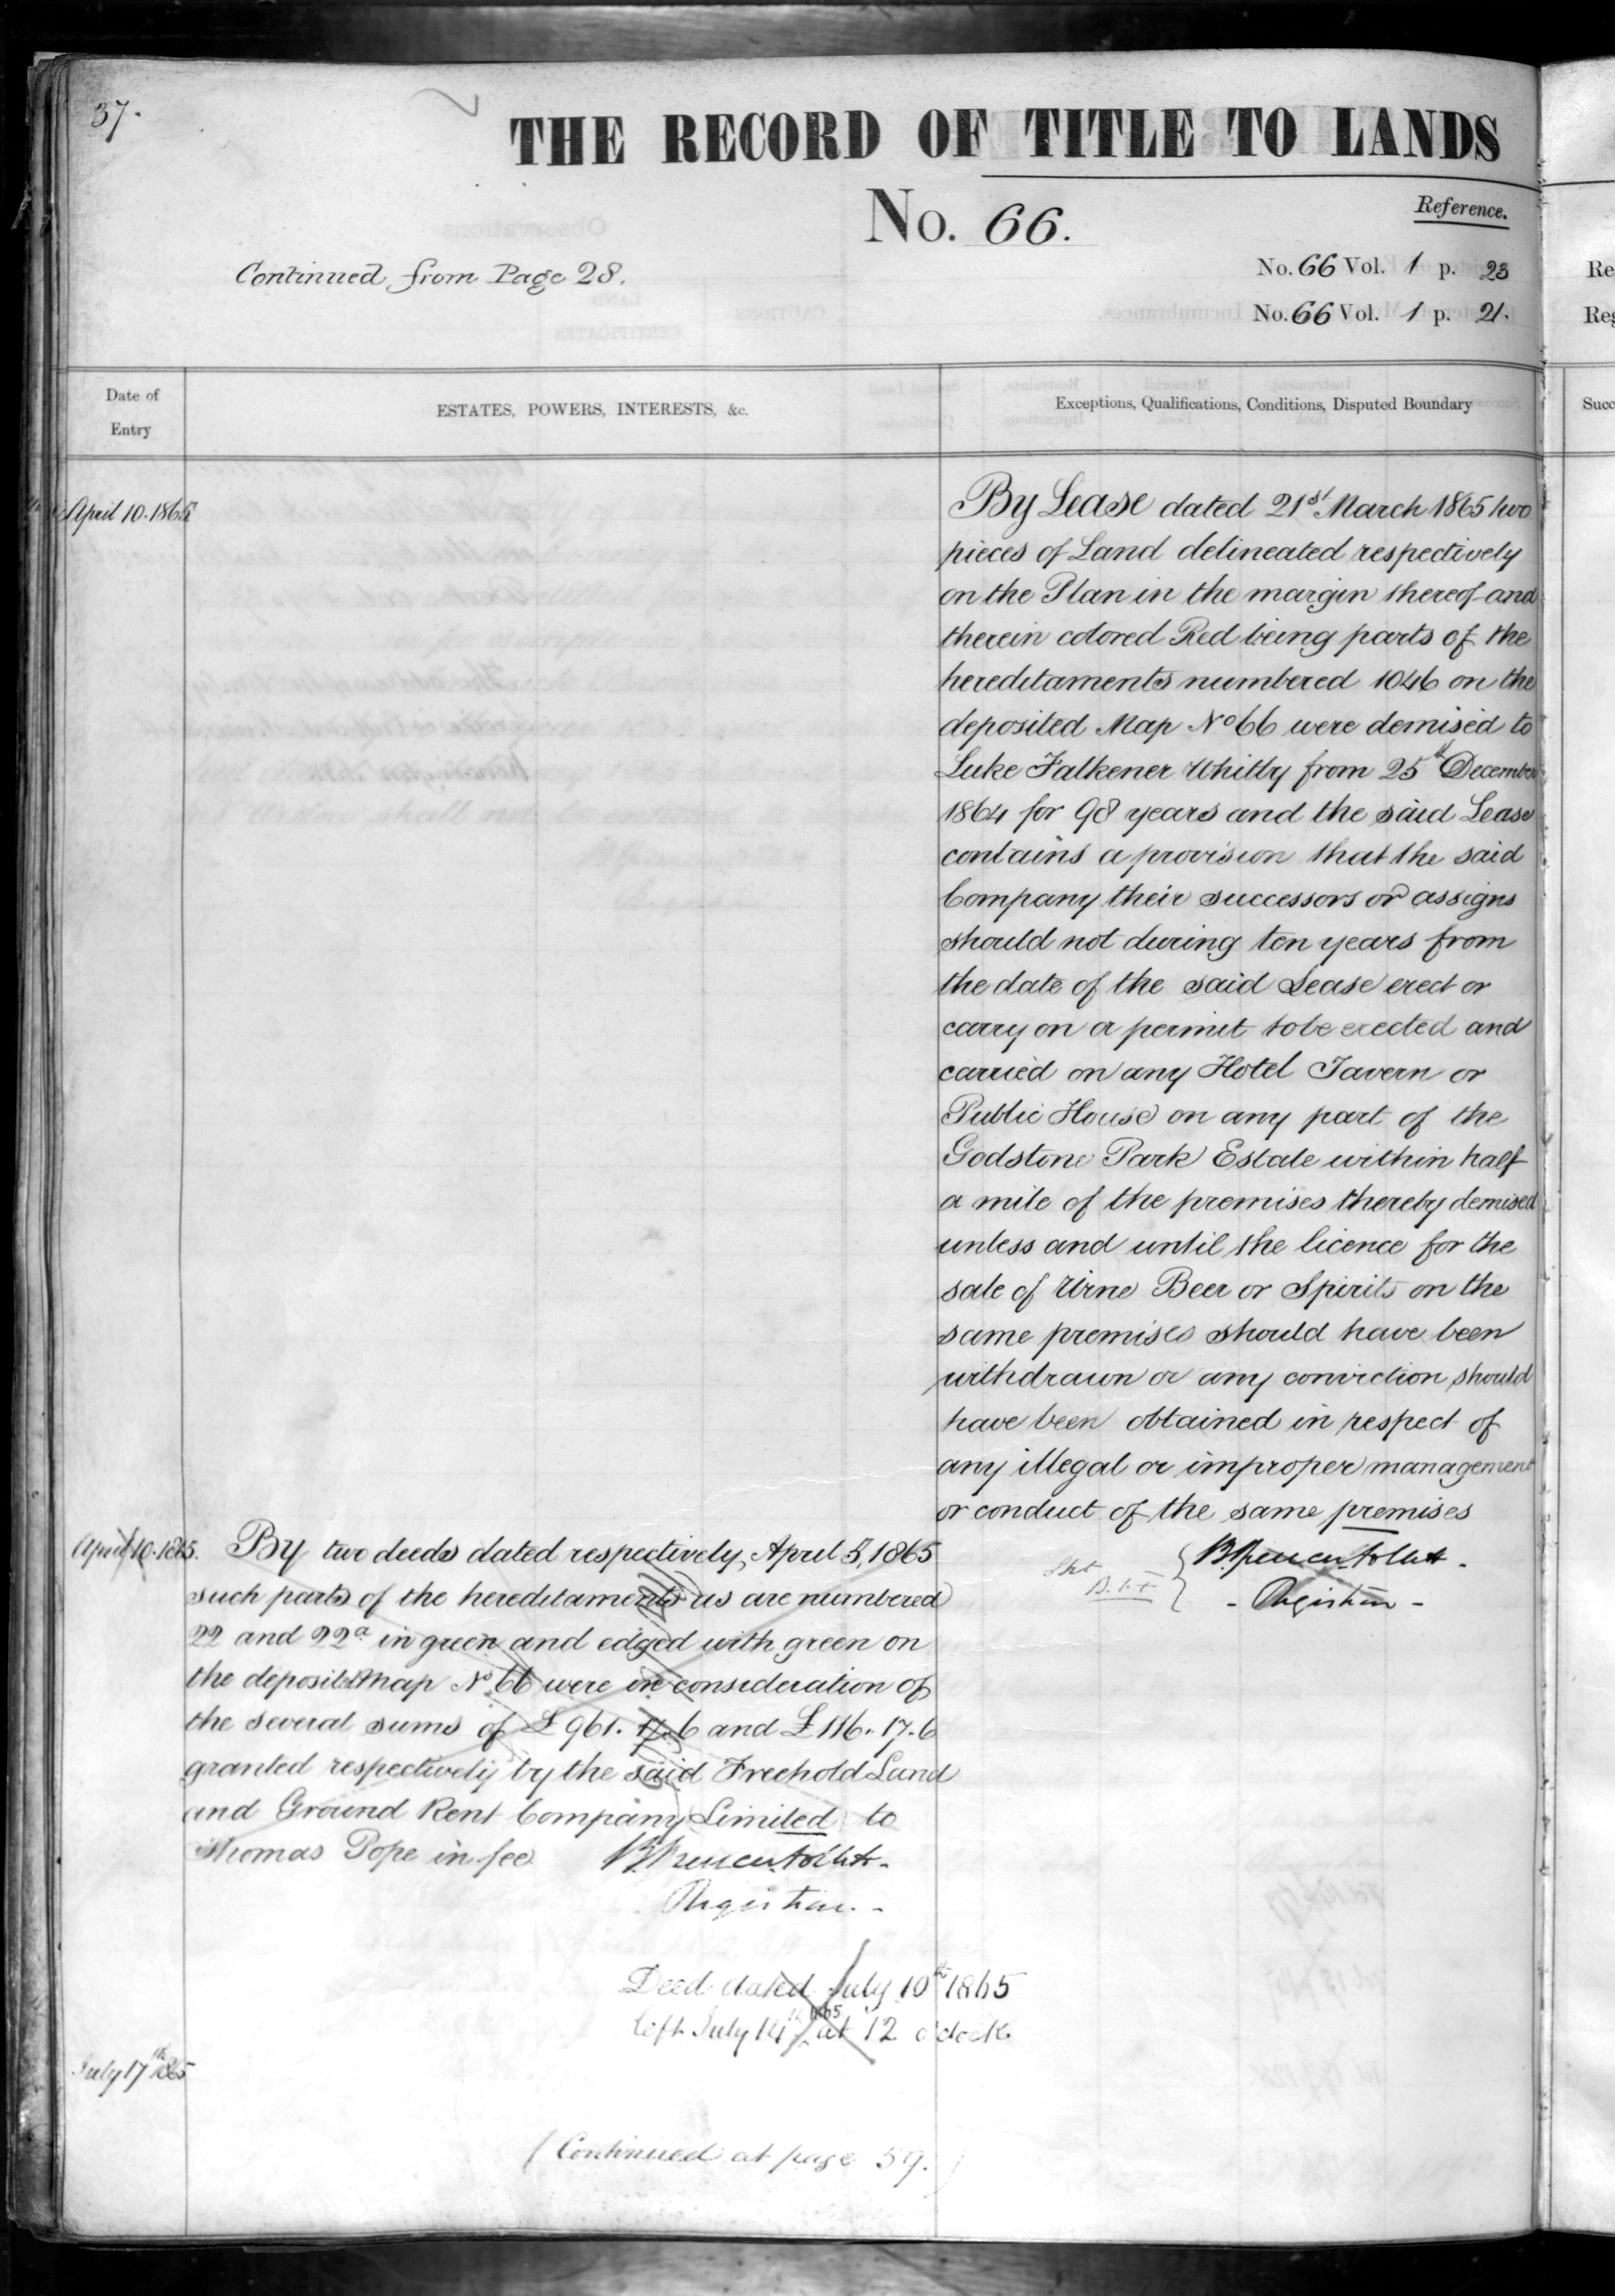 37.
THE RECORD OF TITLE TO LANDS
No. 66.
Reference.
Continued from Page 28.
No. 66 Vol. 1 p. 23
No. 66 Vol. 1 p. 21.
Re
Reg
Date of
Entry
ESTATES, POWERS, INTERESTS, &c.
Exceptions, Qualifications, Conditions, Disputed Boundary
Succ
April 10. 1865
By Lease dated 21st March 1865 two
pieces of Land delineated respectively
on the Plan in the margin thereof and
therein colored Red being parts of the
hereditaments numbered 1046 on the
deposited Map No 66 were demised to
Luke Falkener Whitby from 25th December
1864 for 98 years and the said Lease
contains a provision that the said
Company their successors or assigns
should not during ten years from
the date of the said Lease erect or
carry on or permit to be erected and
carried on any Hotel Tavern or
Public House on any part of the
Godstone Park Estate within half
a mile of the premises thereby demised
unless and until the licence for the
sale of Wine Beer or Spirits on the
same premises should have been
withdrawn or any conviction should
have been obtained in respect of
any illegal or improper management
or conduct of the same premises
Registrar
April 10. 1865.
By two deeds dated respectively April 5, 1865
such parts of the hereditaments as are numbered
22 and 22a in green and edged with green on
the deposited Map No 66 were in consideration of
the several sums of £961. 17. 6 and £116. 17. 6
granted respectively by the said Freehold Land
and Ground Rent Company Limited to
Thomas Pope in fee
Registrar.
Deed dated July 10th 1865
left July 14th 1865 at 12 o'clock
July 17th 1865
(Continued at page 59.)